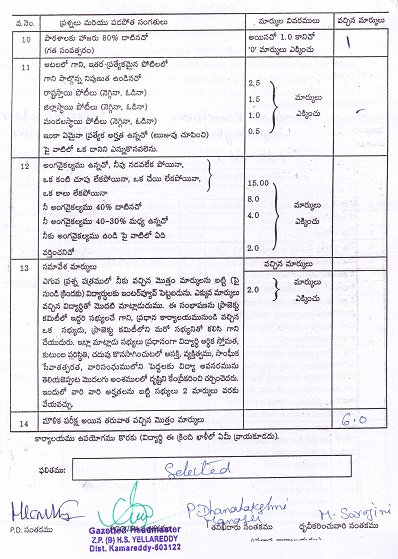 వ.నెం. ప్రశ్నలు మరియు పదపోత సంగతులు మార్కుల వివరములు వచ్చిన మార్కులు
10 పాఠశాలకు హాజరు 80% దాటినచో అయినచో 1.0 కానిచో 1
(గత సంవత్సరం) '0' మార్కులు ఎక్కించు
11 ఆటలలో గాని, ఇతర ప్రత్యేకమైన పోటీలలో
గాని పాల్గొన్న నిపుణత ఉండినచో 2.5
రాష్ట్రస్థాయి పోటీలు (నెగ్గినా, ఓడినా) 1.5 మార్కులు
జిల్లాస్థాయి పోటీలు (నెగ్గినా, ఓడినా) 1.0 ఎక్కించు
మండలస్థాయి పోటీలు (నెగ్గినా, ఓడినా) 0.5
ఇంకా ఏమైనా ప్రత్యేక అర్హత ఉన్నచో (ఋజువు చూపించి)
పై వాటిలో ఒక దానిని ఎన్నుకొనవలెను.
12 అంగవైకల్యము ఉన్నచో, నీవు నడవలేక పోయినా,
ఒక కంటి చూపు లేకపోయినా, ఒక చేయి లేకపోయినా, 15.00
ఒక కాలు లేకపోయినా 8.0 మార్కులు
నీ అంగవైకల్యము 40% దాటినచో 4.0 ఎక్కించు
నీ అంగవైకల్యము 40-30% మధ్య ఉన్నచో
నీకు అంగవైకల్యము ఉండి పై వాటిలో ఏది 2.0
వర్తించనిచో
13 సమావేశ మార్కులు వచ్చిన మార్కులు
ఎగువ ప్రశ్న పత్రములో నీకు వచ్చిన మొత్తం మార్కులను బట్టి (పై
నుండి క్రిందకు) విద్యార్థులకు ఇంటర్వ్యూకి పెట్టబడును. ఎక్కువ మార్కులు 2.0 మార్కులు
వచ్చిన విద్యార్థితో మొదటి మాట్లాడుదుము. ఈ సంభాషణను ప్రాజెక్టు ఎక్కించు
కమిటీలో ఇద్దరి సభ్యులచే గాని, ప్రధాన కార్యాలయమునుండి వచ్చిన
ఒక సభ్యుడు, ప్రాజెక్టు కమిటీలోని మరో సభ్యునితో కలిసి గాని
చేయుదురు. ఇట్లా మాట్లాడు సభ్యులు ప్రధానంగా విద్యార్థి ఆర్థిక స్తోమత,
కుటుంబ పరిస్థితి, చదువు కొనసాగించుటలో ఆసక్తి, వ్యక్తిత్వము, సాంఘిక
సేవాతత్పరత, వారిసంఘములోని పెద్దలకు విద్యా అవసరమును
తెలియజెప్పుట మొదలగు అంశములలో దృష్టిని కేంద్రీకరించి చర్చించెదరు.
ఇందులో వారి వారి అర్హతలను బట్టి సభ్యులు 2 మార్కులు వరకు
వేయవచ్చు.
14 మౌఖిక పరీక్ష అయిన తరువాత వచ్చిన మొత్తం మార్కులు 6.0
కార్యాలయము ఉపయోగము కొరకు (విద్యార్థి ఈ క్రింది ఖాళీలో ఏమీ వ్రాయకూడదు).
ఫలితము: Selected
P. Dhanalakshmi M. Sarojini
P.D. సంతకము Gazetted Headmaster తనిఖీదారు సంతకము ధృవీకరించువారి సంతకము
Z.P. (B) H.S. YELLAREDDY
Dist. Kamareddy-503122